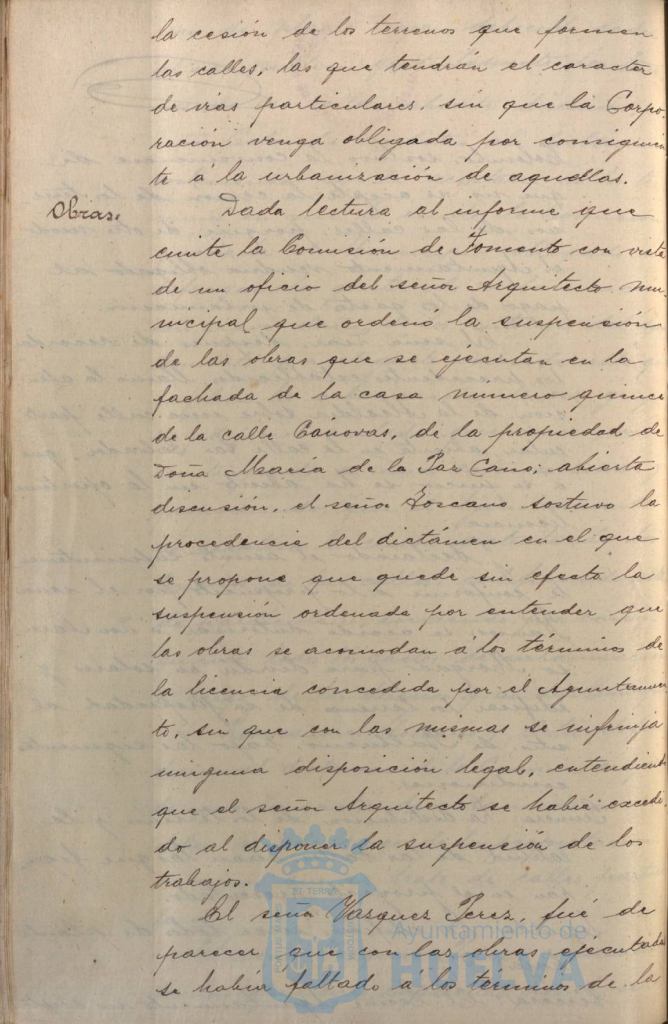 la cesión de los terrenos que formen
las calles, las que tendrán el caracter
de vias particulares, sin que la Corpo-
ración venga obligada por consiguien-
te á la urbanización de aquellas.
Obras.
Dada lectura al informe que
emite la Comisión de Fomento con vista
de un oficio del señor Arquitecto mu-
nicipal que ordenó la suspensión
de las obras que se ejecutan en la
fachada de la casa número quince
de la calle Cánovas, de la propiedad de
Doña Maria de la Paz Cano; abierta
discusión, el señor Toscano sostuvo la
procedencia del dictámen en el que
se propone que quede sin efecto la
suspensión ordenada por entender que
las obras se acomodan á los términos de
la licencia concedida por el Ayuntamien-
to, sin que con las mismas se infrinja
ninguna disposición legal, entendiendo
que el señor Arquitecto se había excedi-
do al disponer la suspensión de los
trabajos.
El señor Vazquez Perez, fué de
parecer que con las obras ejecutadas
se había faltado a los términos de la
Ayuntamiento de
HUELVA